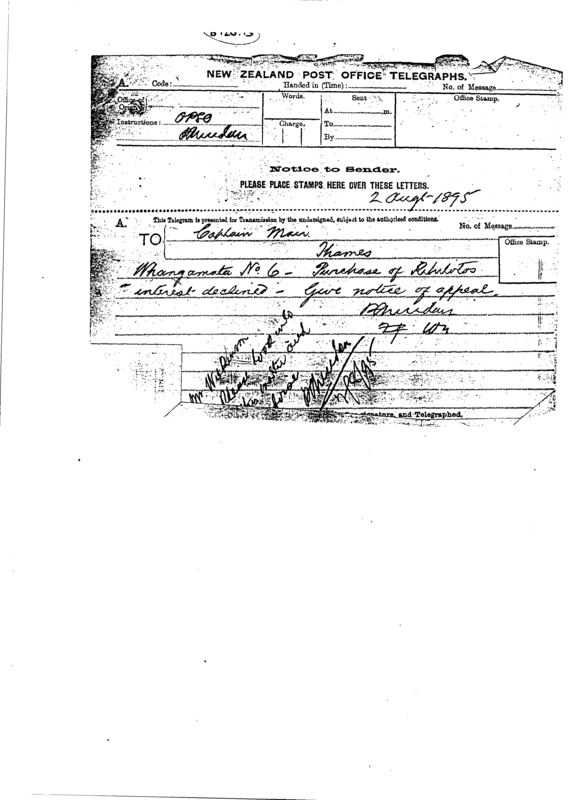 NEW ZEALAND POST OFFICE TELEGRAPHS.
A. Code: Handed in (Time): No. of Message
Office of Origin
Instructions: OPSO
Words. Sent Office Stamp.
At m.
Charge. To
By
Notice to Sender.
PLEASE PLACE STAMPS HERE OVER THESE LETTERS.
2 Augt 1895
A. This Telegram is presented for Transmission by the undersigned, subject to the authorised conditions. No. of Message
TO Captain Mair Office Stamp.
Thames
Whangamata No 6 - Purchase of
interest declined - Give notice of appeal.
Please look into
this matter and
and Telegraphed.